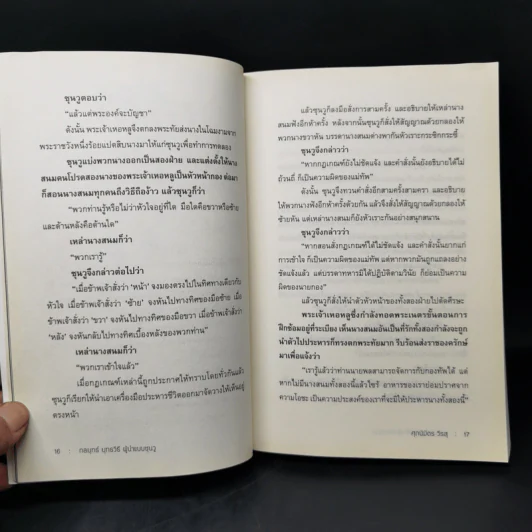 ซุนวูตอบว่า
"แล้วแต่พระองค์จะบัญชา"
ดังนั้น พระเจ้าเหอหลูจึงตกลงพระทัยส่งนางในโฉมงามจาก
พระราชวังหนึ่งร้อยแปดสิบนางมาให้แก่ซุนวูเพื่อทำการทดลอง
ซุนวูแบ่งพวกนางออกเป็นสองฝ่าย และแต่งตั้งให้นาง
สนมคนโปรดสองนางของพระเจ้าเหอหลูเป็นหัวหน้ากอง ต่อมา
ก็สอนนางสนมทุกคนถึงวิธีถือง้าว แล้วซุนวูก็ว่า
"พวกท่านรู้หรือไม่ว่าหัวใจอยู่ที่ใด มือใดคือขวาหรือซ้าย
และด้านหลังคือด้านใด"
เหล่านางสนมก็ว่า
"พวกเรารู้"
ซุนวูจึงกล่าวต่อไปว่า
"เมื่อข้าพเจ้าสั่งว่า 'หน้า' จงมองตรงไปในทิศทางเดียวกับ
หัวใจ เมื่อข้าพเจ้าสั่งว่า 'ซ้าย' จงหันไปทางทิศของมือซ้าย เมื่อ
ข้าพเจ้าสั่งว่า 'ขวา' จงหันไปทางทิศของมือขวา เมื่อข้าพเจ้าสั่งว่า
'หลัง' จงหันกลับไปทางทิศเบื้องหลังของพวกท่าน"
เหล่านางสนมก็ว่า
"พวกเราเข้าใจแล้ว"
เมื่อกฎเกณฑ์เหล่านี้ถูกประกาศให้ทราบโดยทั่วกันแล้ว
ซุนวูก็เรียกให้นำเอาเครื่องมือประหารชีวิตออกมาจัดวางให้เห็นอยู่
ตรงหน้า
16 : กลยุทธ์ ยุทธวิธี ผู้นำแบบซุนวู
แล้วซุนวูก็ลงมือสั่งการสามครั้ง และอธิบายให้เหล่านาง
สนมฟังอีกห้าครั้ง หลังจากนั้นซุนวูก็สั่งให้สัญญาณด้วยกลองให้
พวกนางขวาหัน บรรดานางสนมต่างพากันหัวเราะกระซิกกระซี้
ซุนวูจึงกล่าวว่า
"หากกฎเกณฑ์ยังไม่ชัดแจ้ง และคำสั่งนั้นยังอธิบายได้ไม่
ถ้วนถี่ ก็เป็นความผิดของแม่ทัพ"
ดังนั้น ซุนวูจึงทวนคำสั่งอีกสามครั้งสามครา และอธิบาย
ให้พวกนางฟังอีกห้าครั้งด้วยกัน แล้วจึงสั่งให้สัญญาณด้วยกลองให้
ซ้ายหัน แต่เหล่านางสนมก็ยังหัวเราะกันอย่างสนุกสนาน
ซุนวูจึงกล่าวว่า
"หากสอนสั่งกฎเกณฑ์ไม่ได้ชัดแจ้ง และคำสั่งนั้นยากแก่
การเข้าใจ ก็เป็นความผิดของแม่ทัพ แต่หากพวกมันถูกแถลงอย่าง
ชัดแจ้งแล้ว แต่บรรดาทหารมิได้ปฏิบัติตามวินัย ก็ย่อมเป็นความ
ผิดของนายกอง"
แล้วซุนวูก็สั่งให้นำตัวหัวหน้าของทั้งสองฝ่ายไปตัดศีรษะ
พระเจ้าเหอหลูซึ่งกำลังทอดพระเนตรขั้นตอนการ
ฝึกซ้อมอยู่ที่ระเบียง เห็นนางสนมอันเป็นที่รักทั้งสองกำลังจะถูก
นำตัวไปประหารก็ทรงตกพระทัยมาก รีบร้อนส่งราชองครักษ์
มาเพื่อแจ้งว่า
"เรารู้แล้วว่าท่านนายพลสามารถจัดการกับกองทัพได้ แต่
หากไม่มีนางสนมทั้งสองนี้แล้วไซร้ อาหารของเราย่อมปราศจาก
ความโอชะ เป็นความประสงค์ของเราที่จะมิให้ประหารนางทั้งสองนี้"
ศุภนิมิตร วีรสุ : 17